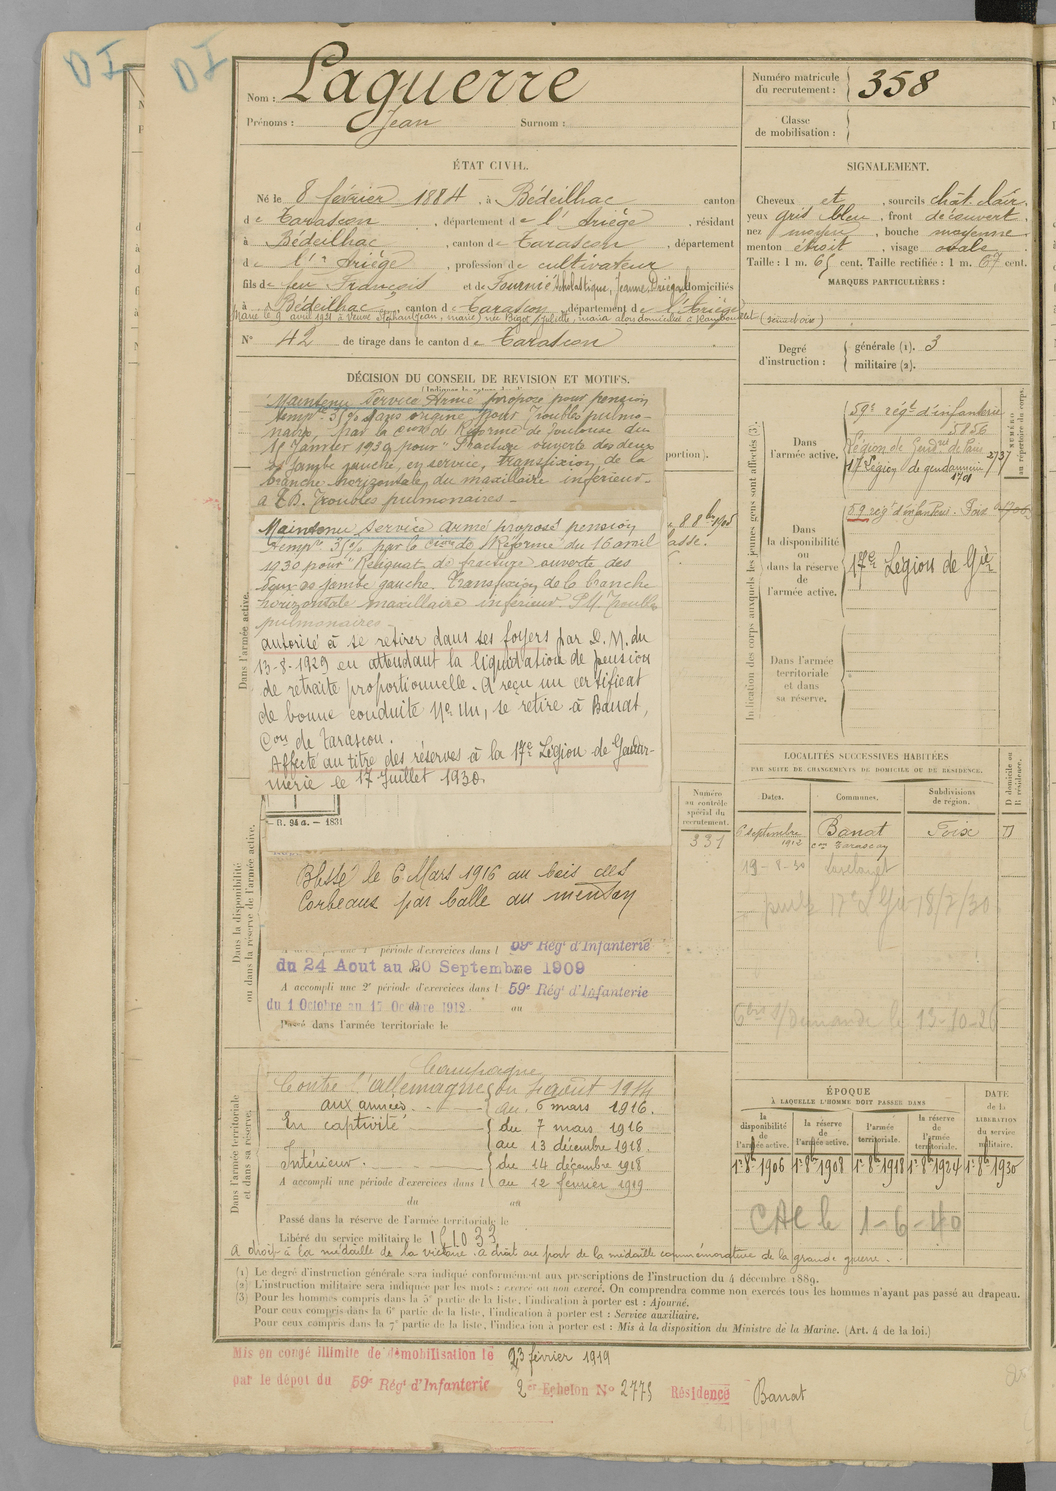 D I
D I
Nom : Laguerre
Prénoms : Jean Surnom :
Numéro matricule
du recrutement : 358
Classe
de mobilisation :
ÉTAT CIVIL.
Né le 8 février 1884, à Bédeilhac canton
de Tarascon, département de l'Ariège, résidant
à Bédeilhac, canton de Tarascon, département
de l'Ariège, profession de cultivateur
fils de feu François et de Fournié Scholastique, Jeanne, domiciliés
à Bédeilhac, canton de Tarascon, département de l'Ariège
Marié le 9 avril 1921 à Veuve Stéphan (Jean, marie) née Bigot (Juliette, maria alors domiciliée à Rambouillet (Seine et Oise)
N° 42 de tirage dans le canton de Tarascon
SIGNALEMENT.
Cheveux et, sourcils chât. clair,
yeux gris bleu, front découvert,
nez moyen, bouche moyenne
menton étroit, visage ovale
Taille : 1 m. 65 cent. Taille rectifiée : 1 m. 67 cent.
MARQUES PARTICULIÈRES :
Degré
d'instruction :
générale (1). 3
militaire (2).
DÉCISION DU CONSEIL DE REVISION ET MOTIFS.
Maintenu Service Armé proposé pour pension
temp^re 35% sans origine pour Troubles pulmo-
naires, par la C^ion de Réforme de Toulouse du
15 Janvier 1932 pour "Fracture ouverte des deux
os jambe gauche, en service, transfixion de la
branche horizontale du maxillaire inférieur-
Troubles pulmonaires -
portion).
Maintenu service armé proposé pension
temp^re 35% par la C^ion de Réforme du 16 avril
1930 pour "Reliquat de fracture ouverte des
deux os jambe gauche. Transfixion de la branche
horizontale maxillaire inférieur. Troubles
pulmonaires -
autorisé à se retirer dans ses foyers par D. M. du
13-8-1929 en attendant la liquidation de pension
de retraite proportionnelle. A reçu un certificat
de bonne conduite N° Un, se retire à Banat,
C^on de Tarascon.
Affecté au titre des réserves à la 17^e Légion de Gendar-
merie le 17 Juillet 1930.
— II. 94 a. — 1831
Blessé le 6 Mars 1916 au bois des
Corbeaux par balle au menton
période d'exercices dans l 59e Régt d'Infanterie
du 24 Aout au 20 Septembre 1909
A accompli une 2e période d'exercices dans l 59e Régt d'Infanterie
du 1 Octobre au 17 Octobre 1912 au
Passé dans l'armée territoriale le
Indication des corps auxquels les jeunes gens sont affectés (3).
NUMÉRO
au répertoire du corps.
Dans
l'armée active.
59e régt d'infanterie
5856
Légion de Gend^rie de Paris 2737
17e Légion de gendarmerie
1701
Dans
la disponibilité
ou
dans la réserve
de
l'armée active.
59 rég^t d'infanterie. Foix
17e Légion de G^ie
Dans l'armée
territoriale
et dans
sa réserve.
Dans l'armée active.
Dans la disponibilité
ou dans la réserve de l'armée active.
Numéro
au contrôle
spécial du
recrutement.
331
LOCALITÉS SUCCESSIVES HABITÉES
PAR SUITE DE CHANGEMENTS DE DOMICILE OU DE RÉSIDENCE.
D domicile ou
R résidence.
Dates. Communes. Subdivisions
de région.
6 septembre
1912 Banat
c^on Tarascon Foix D
19-8-30 Lavelanet
17e L Gie 18/7/30
demande le 13-10-26
Dans l'armée territoriale
et dans sa réserve.
Campagne
Contre l'allemagne du 4 août 1914
aux armées au 6 mars 1916.
En captivité du 7 mars 1916
au 13 décembre 1918.
Intérieur. du 14 décembre 1918
A accompli une période d'exercices dans l au 12 février 1919
du au
Passé dans la réserve de l'armée territoriale le
Libéré du service militaire le 15 10 33
A droit à la médaille de la victoire. A droit au port de la médaille commémorative de la grande guerre.
ÉPOQUE
À LAQUELLE L'HOMME DOIT PASSER DANS
la
disponibilité
de
l'armée active.
la réserve
de
l'armée active.
l'armée
territoriale.
la réserve
de
l'armée
territoriale.
DATE
de la
LIBÉRATION
du service
militaire.
1er 8bre 1906 1er 8bre 1908 1er 8bre 1918 1er 8bre 1924 1er 8bre 1930
CAC le 1-6-40
(1) Le degré d'instruction générale sera indiqué conformément aux prescriptions de l'instruction du 4 décembre 1889.
(2) L'instruction militaire sera indiquée par les mots : exercé ou non exercé. On comprendra comme non exercés tous les hommes n'ayant pas passé au drapeau.
(3) Pour les hommes compris dans la 5e partie de la liste, l'indication à porter est : Ajourné.
Pour ceux compris dans la 6e partie de la liste, l'indication à porter est : Service auxiliaire.
Pour ceux compris dans la 7e partie de la liste, l'indication à porter est : Mis à la disposition du Ministre de la Marine. (Art. 4 de la loi.)
Mis en congé illimité de démobilisation le 23 février 1919
par le dépot du 59e Régt d'Infanterie 2e Echelon N° 2775 Résidence Banat